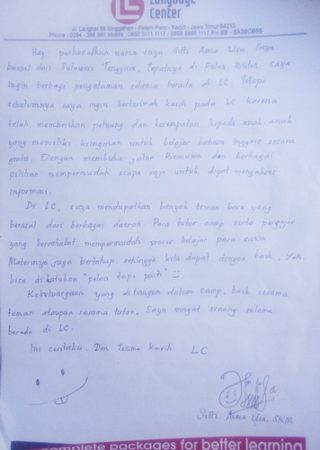 Language
Center
Jl. Langkat 88 Singgahan - Pelem Pare - Kediri - Jawa Timur 64213
Hay perkenalkan nama saya Sitti Asma Usra. Saya
berasal dari Sulawesi Tenggara, tepatnya di Pulau Buton. Saya
ingin berbagi pengalaman selama berada di LC. Tetapi
sebelumnya saya ingin berterimah kasih pada LC karena
telah memberikan peluang dan kesempatan kepada anak-anak
yang memiliki keinginan untuk belajar bahasa Inggris secara
gratis. Dengan membuka jalur Beasiswa dan berbagai
pilihan mempermudah siapa saja untuk dapat mengakses
informasi.
Di LC, saya mendapatkan banyak teman baru yang
berasal dari berbagai daerah. Para tutor camp serta pengajar
yang bersahabat, mempermudah proses belajar para siswa
Materinya juga bertahap, sehingga kita dapat dengan baik. Yah.
bisa dikatakan "pelan tapi pasti"
Kekeluargaan yang dibangun dalam camp, baik sesama
teman ataupun sesama tutor. Saya sangat senang selama
berada di LC.
Ini ceritaku. Dan Terima Kasih LC
Sitti Asma Usra, SKM
complete packages for better learning